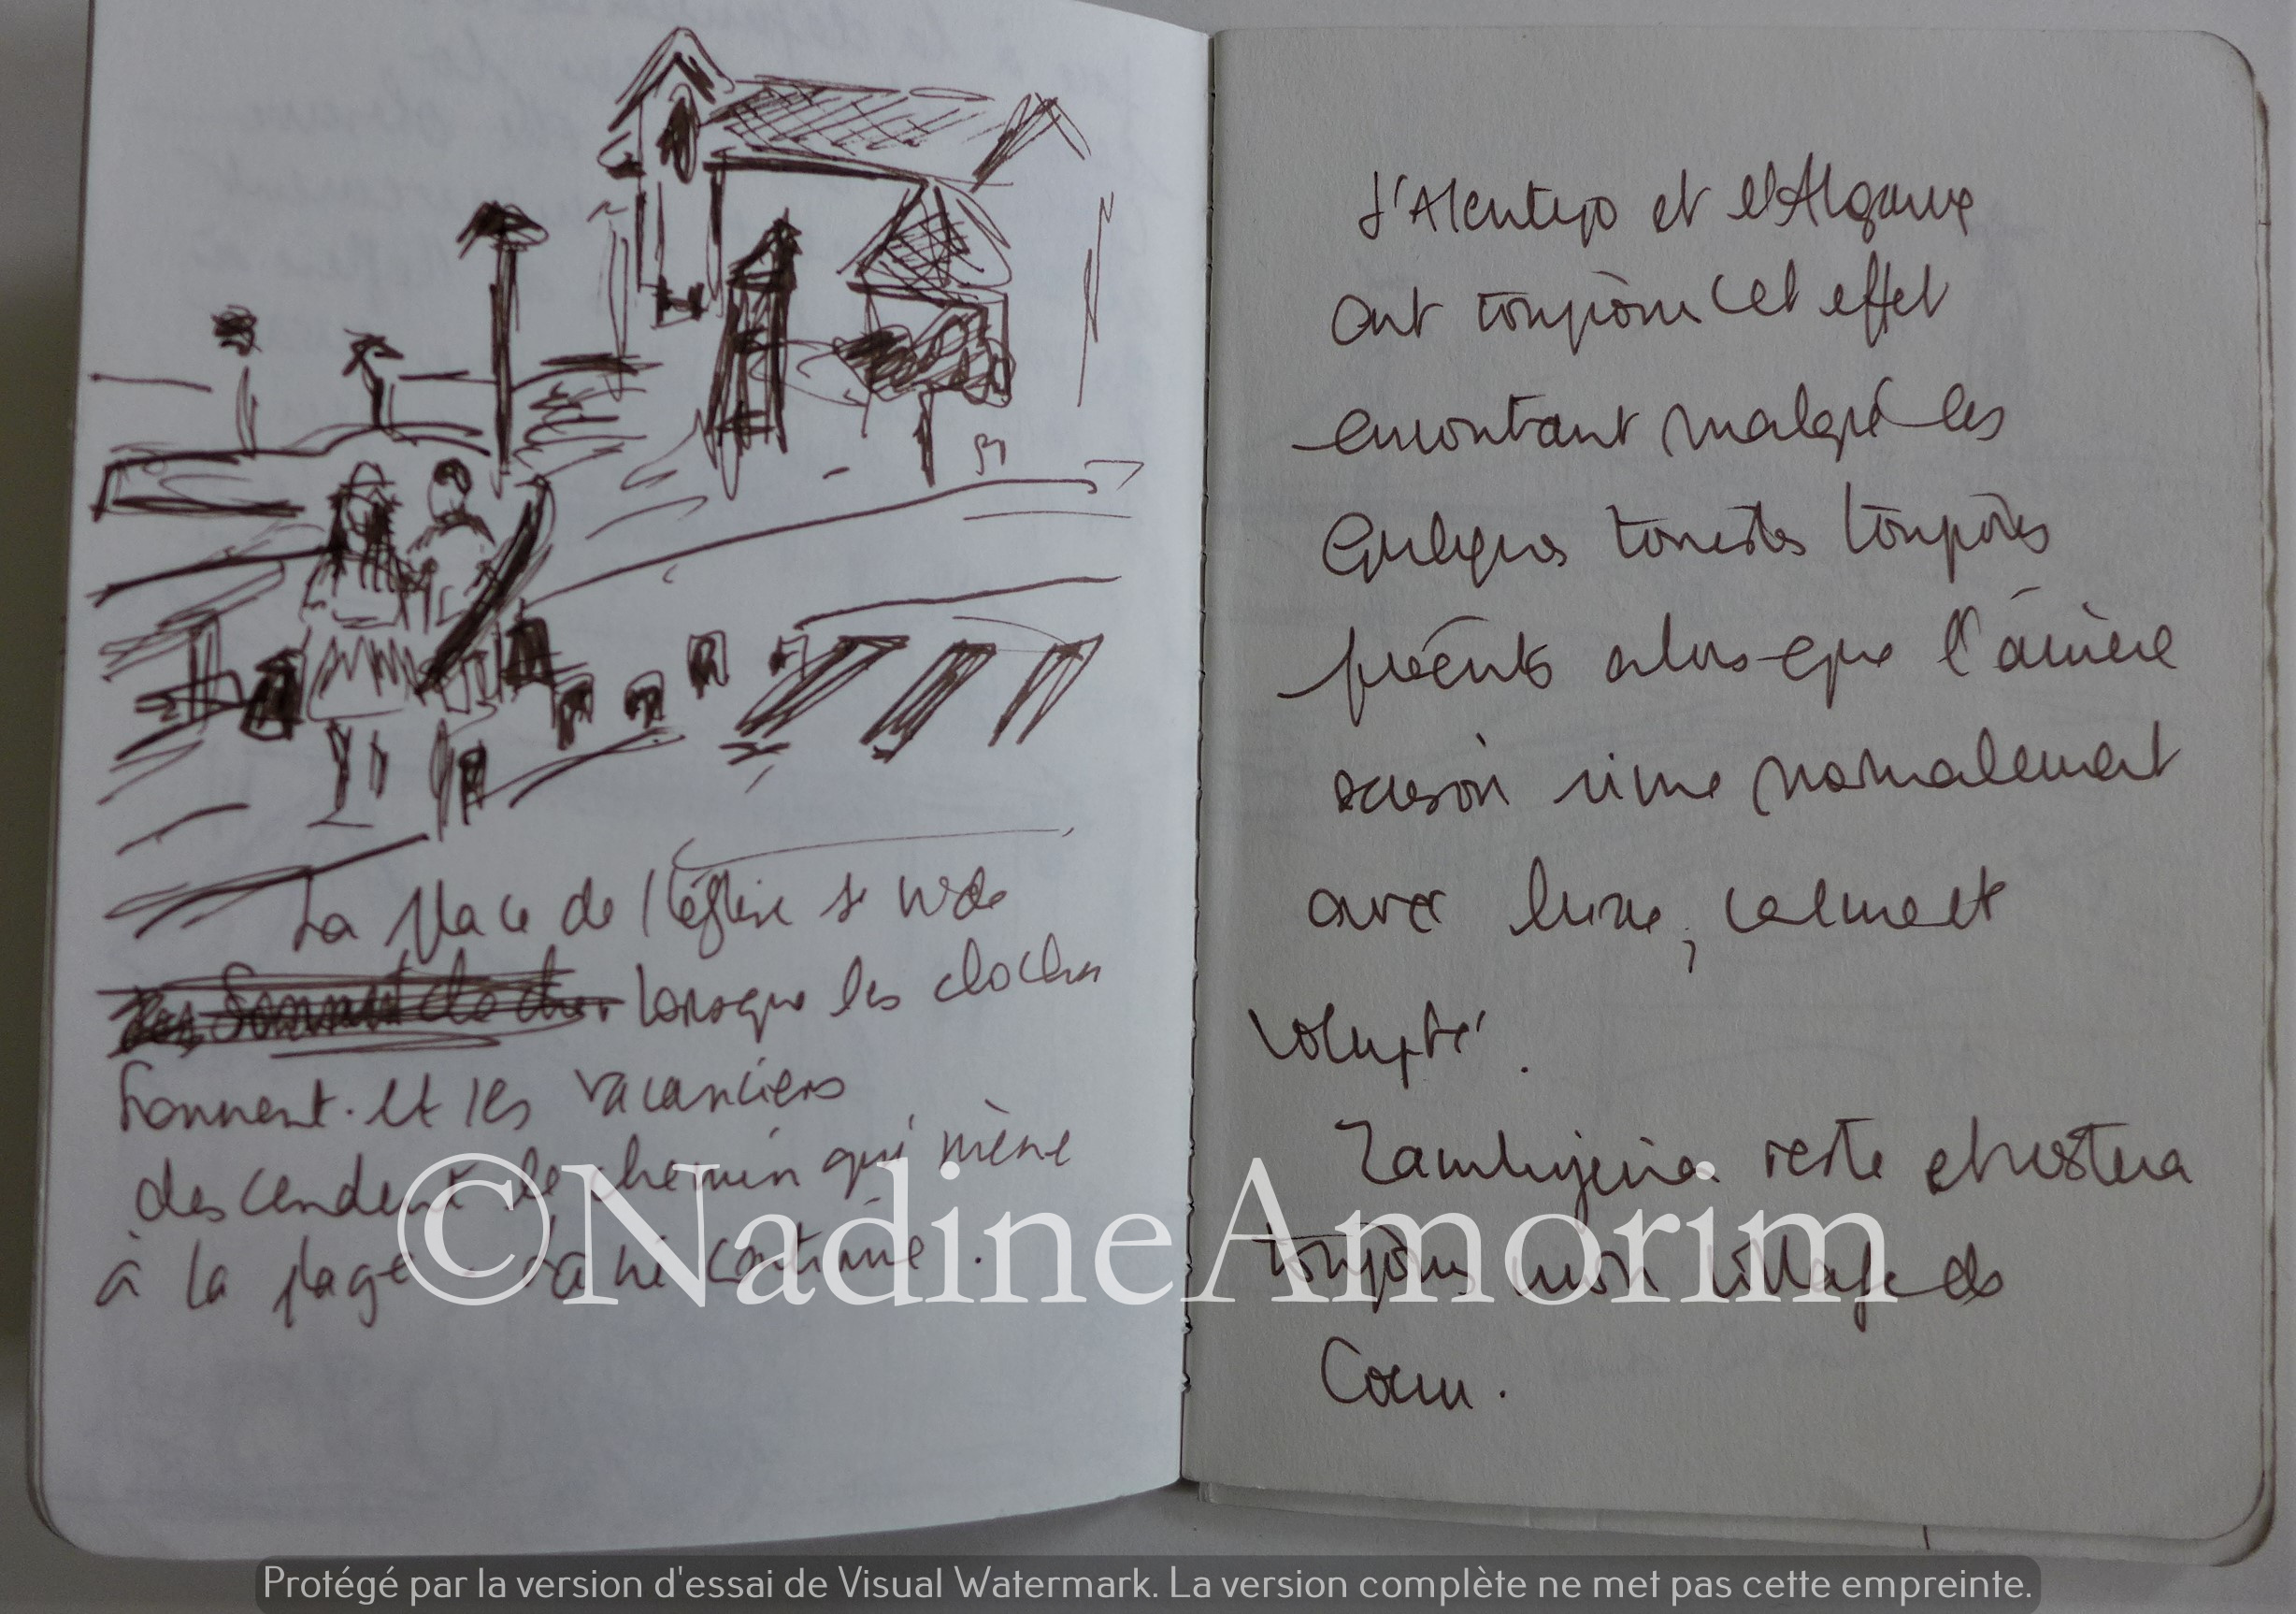 La place de l'église se vide
lorsque les cloches
sonnent. et les vacanciers
descendent le chemin qui mène
à la plage.
L'Alentejo et l'Algarve
ont toujours cet effet
envoûtant malgré les
quelques touristes toujours
présents alors que l'arrière
saison rime normalement
avec luxe, calme et
volupté.
Zambujeira reste et restera
toujours mon village de
Cœur.
©NadineAmorim
Protégé par la version d'essai de Visual Watermark. La version complète ne met pas cette empreinte.